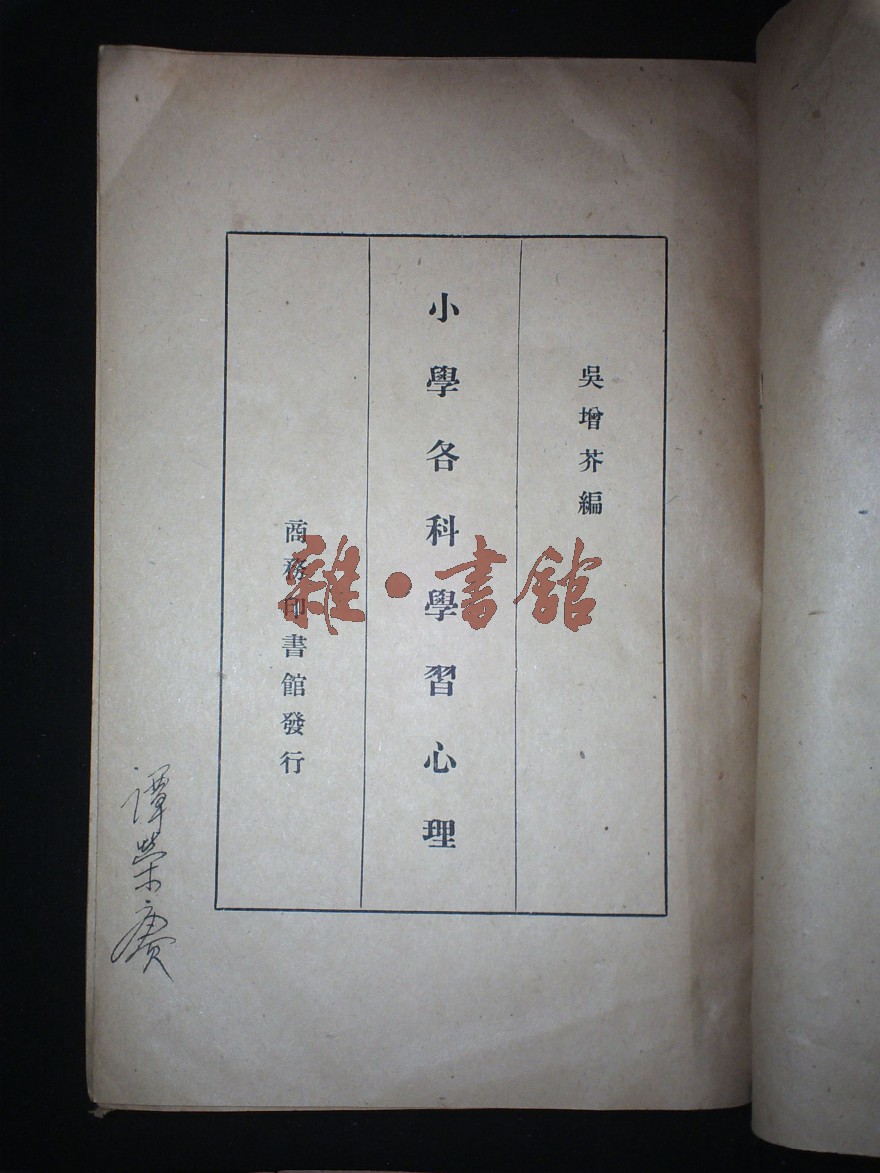 吳增芥編
小學各科學習心理
商務印書館發行
雜·書館
譚榮賡